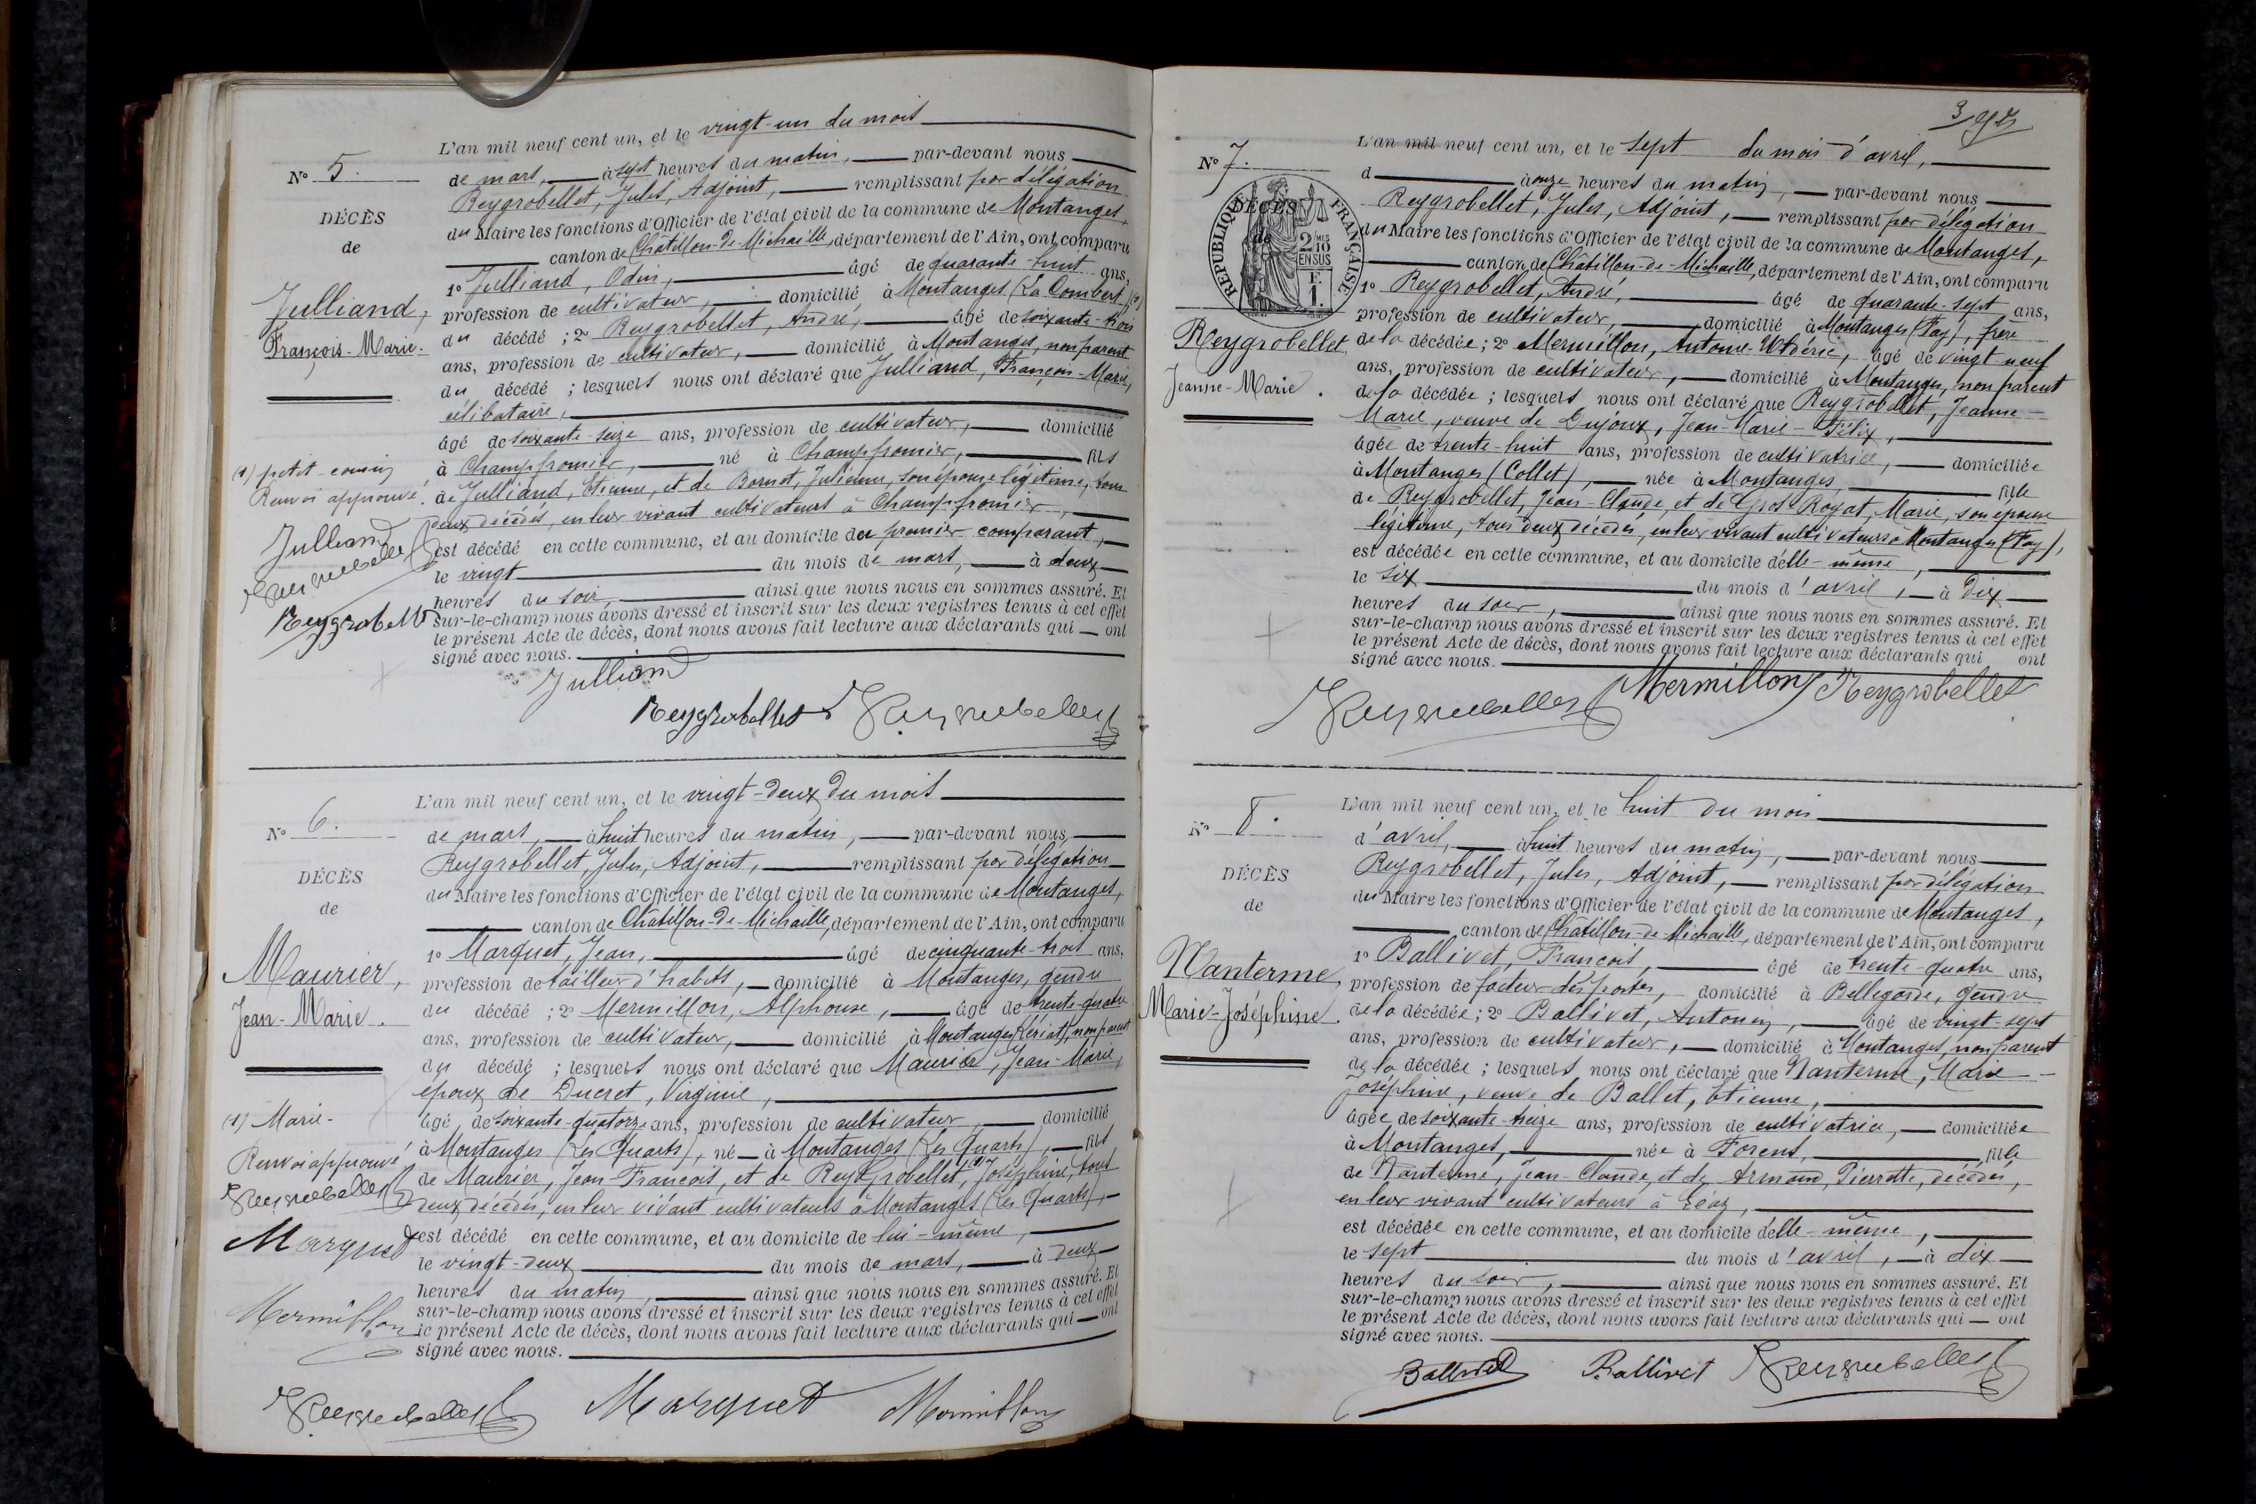 L'an mil neuf cent un, et le vingt-un du mois
N° 5.
de mars, à sept heures du matin, par-devant nous
Reygrobellet, Jules, Adjoint, remplissant par délégation
DÉCÈS
du Maire les fonctions d'Officier de l'état civil de la commune de Montanges,
de
canton de Châtillon-de-Michaille, département de l'Ain, ont comparu
1° Julliand, Odin, âgé de quarante-huit ans,
Julliand,
profession de cultivateur, domicilié à Montanges (La Combert) (1)
François-Marie.
du décédé ; 2° Reygrobellet, André, âgé de soixante-trois
ans, profession de cultivateur, domicilié à Montanges, non parent
du décédé ; lesquels nous ont déclaré que Julliand, François-Marie,
célibataire,
âgé de soixante-seize ans, profession de cultivateur, domicilié
à Champfromier, né à Champfromier, fils
(1) petit-cousin
Renvoi approuvé.
de Julliand, Etienne, et de Bornet, Julienne, son épouse légitime, tous
deux décédés, en leur vivant cultivateurs à Champfromier,
Julliand
est décédé en cette commune, et au domicile du premier comparant,
Reygrobellet
le vingt du mois de mars, à deux
heures du soir, ainsi que nous nous en sommes assuré. Et
Reygrobellet
sur-le-champ nous avons dressé et inscrit sur les deux registres tenus à cet effet
le présent Acte de décès, dont nous avons fait lecture aux déclarants qui ont
signé avec nous.
Julliand
Reygrobellet Reygrobellet
L'an mil neuf cent un, et le vingt-deux du mois
N° 6.
de mars, à huit heures du matin, par-devant nous
Reygrobellet, Jules, Adjoint, remplissant par délégation
DÉCÈS
du Maire les fonctions d'Officier de l'état civil de la commune de Montanges,
de
canton de Châtillon-de-Michaille, département de l'Ain, ont comparu
1° Marquet, Jean, âgé de cinquante-trois ans,
Maurier,
profession de tailleur d'habits, domicilié à Montanges, gendre
Jean-Marie.
du décédé ; 2° Mermillon, Alphonse, âgé de trente-quatre
ans, profession de cultivateur, domicilié à Montanges non parent
du décédé ; lesquels nous ont déclaré que Maurier, Jean-Marie,
époux de Ducret, Virginie,
(1) Marie-
âgé de soixante-quatorze ans, profession de cultivateur, domicilié
à Montanges (Les Quarts), né à Montanges (Les Quarts), fils
Renvoi approuvé.
de Maurier, Jean-François, et de Reygrobellet, (1) Joséphine, tous
Reygrobellet
deux décédés, en leur vivant cultivateurs à Montanges (Les Quarts),
Marquet
est décédé en cette commune, et au domicile de lui-même,
le vingt-deux du mois de mars, à deux
heures du matin, ainsi que nous nous en sommes assuré. Et
Mermillon
sur-le-champ nous avons dressé et inscrit sur les deux registres tenus à cet effet
le présent Acte de décès, dont nous avons fait lecture aux déclarants qui ont
signé avec nous.
Reygrobellet Marquet Mermillon
3
L'an mil neuf cent un, et le sept du mois d'avril,
N° 7.
d à onze heures du matin, par-devant nous
Reygrobellet, Jules, Adjoint, remplissant par délégation
DÉCÈS
de
RÉPUBLIQUE FRANÇAISE
2 MES 10
EN SUS
F.
1.
du Maire les fonctions d'Officier de l'état civil de la commune de Montanges,
canton de Châtillon-de-Michaille, département de l'Ain, ont comparu
1° Reygrobellet, André, âgé de quarante-sept ans,
profession de cultivateur, domicilié à Montanges (Fay), frère
Reygrobellet
de la décédée ; 2° Mermillon, Antoine âgé de vingt neuf
Jeanne-Marie.
ans, profession de cultivateur, domicilié à Montanges, non parent
de la décédée ; lesquels nous ont déclaré que Reygrobellet, Jeanne-
Marie, veuve de Dujoux, Jean-Marie-Félix,
âgée de trente-huit ans, profession de cultivatrice, domiciliée
à Montanges (Collet), née à Montanges, fille
de Reygrobellet, Jean-Claude, et de Gros-Royat, Marie, son épouse
légitime, tous deux décédés, en leur vivant cultivateurs à Montanges (Fay),
est décédée en cette commune, et au domicile d'elle-même,
le six du mois d'avril, à dix
heures du soir, ainsi que nous nous en sommes assuré. Et
sur-le-champ nous avons dressé et inscrit sur les deux registres tenus à cet effet
le présent Acte de décès, dont nous avons fait lecture aux déclarants qui ont
signé avec nous.
Reygrobellet Mermillon Reygrobellet
L'an mil neuf cent un, et le huit du mois
N° 8.
d'avril, à huit heures du matin, par-devant nous
Reygrobellet, Jules, Adjoint, remplissant par délégation
DÉCÈS
du Maire les fonctions d'Officier de l'état civil de la commune de Montanges,
de
canton de Châtillon-de-Michaille, département de l'Ain, ont comparu
1° Ballivet, François, âgé de trente-quatre ans,
Nanterme,
profession de facteur des postes, domicilié à Bellegarde, gendre
Marie-Joséphine.
de la décédée ; 2° Ballivet, Antonin, âgé de vingt-sept
ans, profession de cultivateur, domicilié à Montanges, non parent
de la décédée ; lesquels nous ont déclaré que Nanterme, Marie-
Joséphine, veuve de Ballet, Etienne,
âgée de soixante-treize ans, profession de cultivatrice, domiciliée
à Montanges, née à Forens, fille
de Nanterme, Jean-Claude, et de Armand, Pierrette, décédés,
en leur vivant cultivateurs à Léaz,
est décédée en cette commune, et au domicile d'elle-même,
le sept du mois d'avril, à dix
heures du soir, ainsi que nous nous en sommes assuré. Et
sur-le-champ nous avons dressé et inscrit sur les deux registres tenus à cet effet
le présent Acte de décès, dont nous avons fait lecture aux déclarants qui ont
signé avec nous.
Ballivet Ballivet Reygrobellet